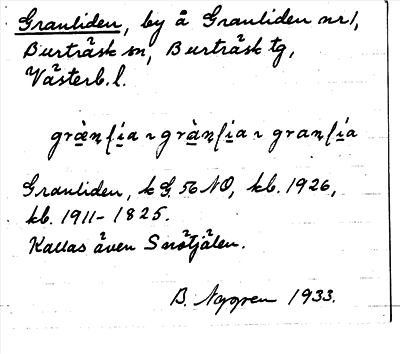 Granliden, by å Granliden nr 1,
Burträsk sn, Burträsk tg,
Västerb. l.
Granliden, k G. 56 NO, kb. 1926,
kb. 1911-1825.
Kallas även Snötjälen.
B. Nygren 1933.